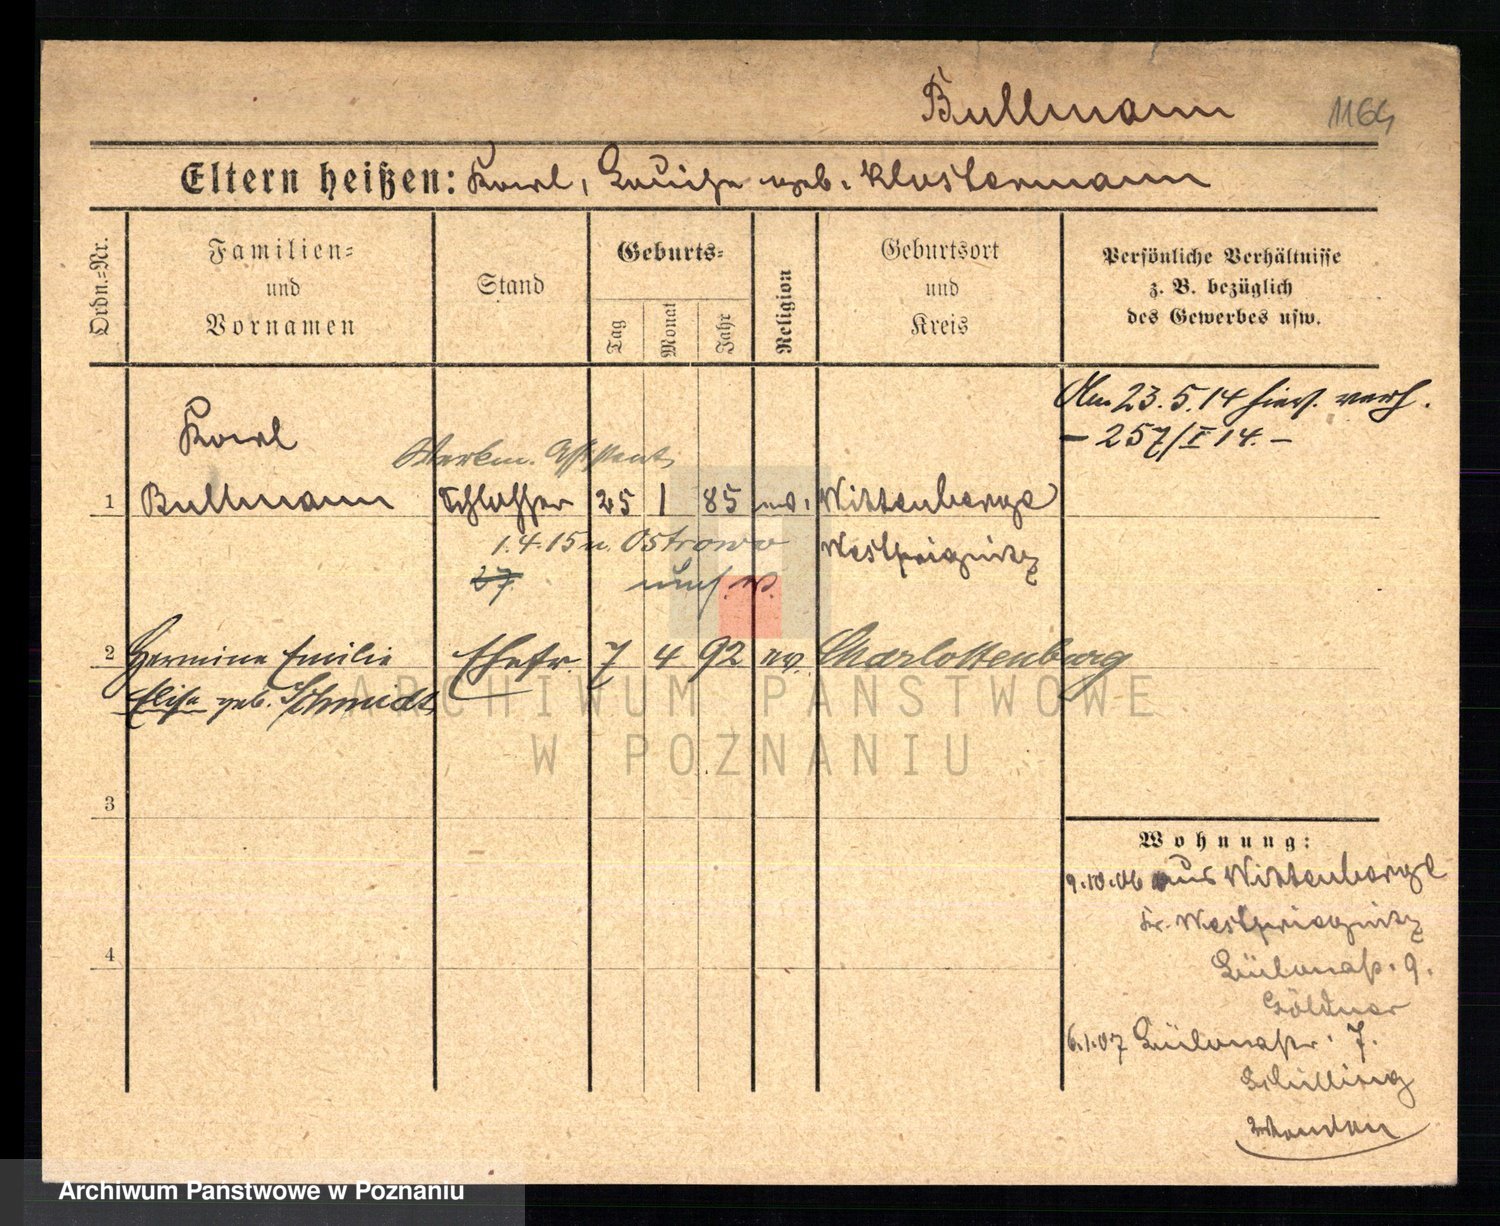 Bullmann 1164
Eltern heißen: Karl, Louise geb. Klostermann
Ordn.=Nr.
Familien=
und
Vornamen
Stand
Geburts=
Tag
Monat
Jahr
Religion
Geburtsort
und
Kreis
Persönliche Verhältnisse
z. B. bezüglich
des Gewerbes usw.
Am 23.5.14 hies. verh.
– 257/I 14. –
Karl
Werkm. Assistent
1 Bullmann Schlosser 25 1 85 ev. Wittenberge
1.4.15 n. Ostrowo Westprignitz
27
2 Hermine Emilie Ehefr. 7 4 92 ev. Charlottenburg
Elise geb. Schmidt
ARCHIWUM PAŃSTWOWE
W POZNANIU
3
4
Wohnung:
9.10.06 aus Wittenberge
Kr. Westpriegnitz
9.
Göldner
6.1.07 7.
Schilling
wenden
Archiwum Państwowe w Poznaniu